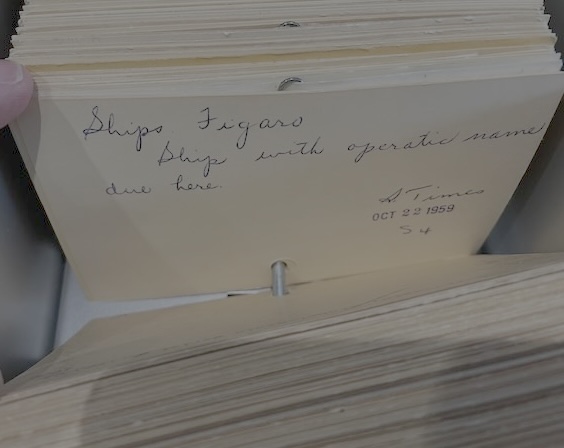 Ships. Figaro
Ship with operatic name
due here.
S. Times
OCT 22 1959
S 4